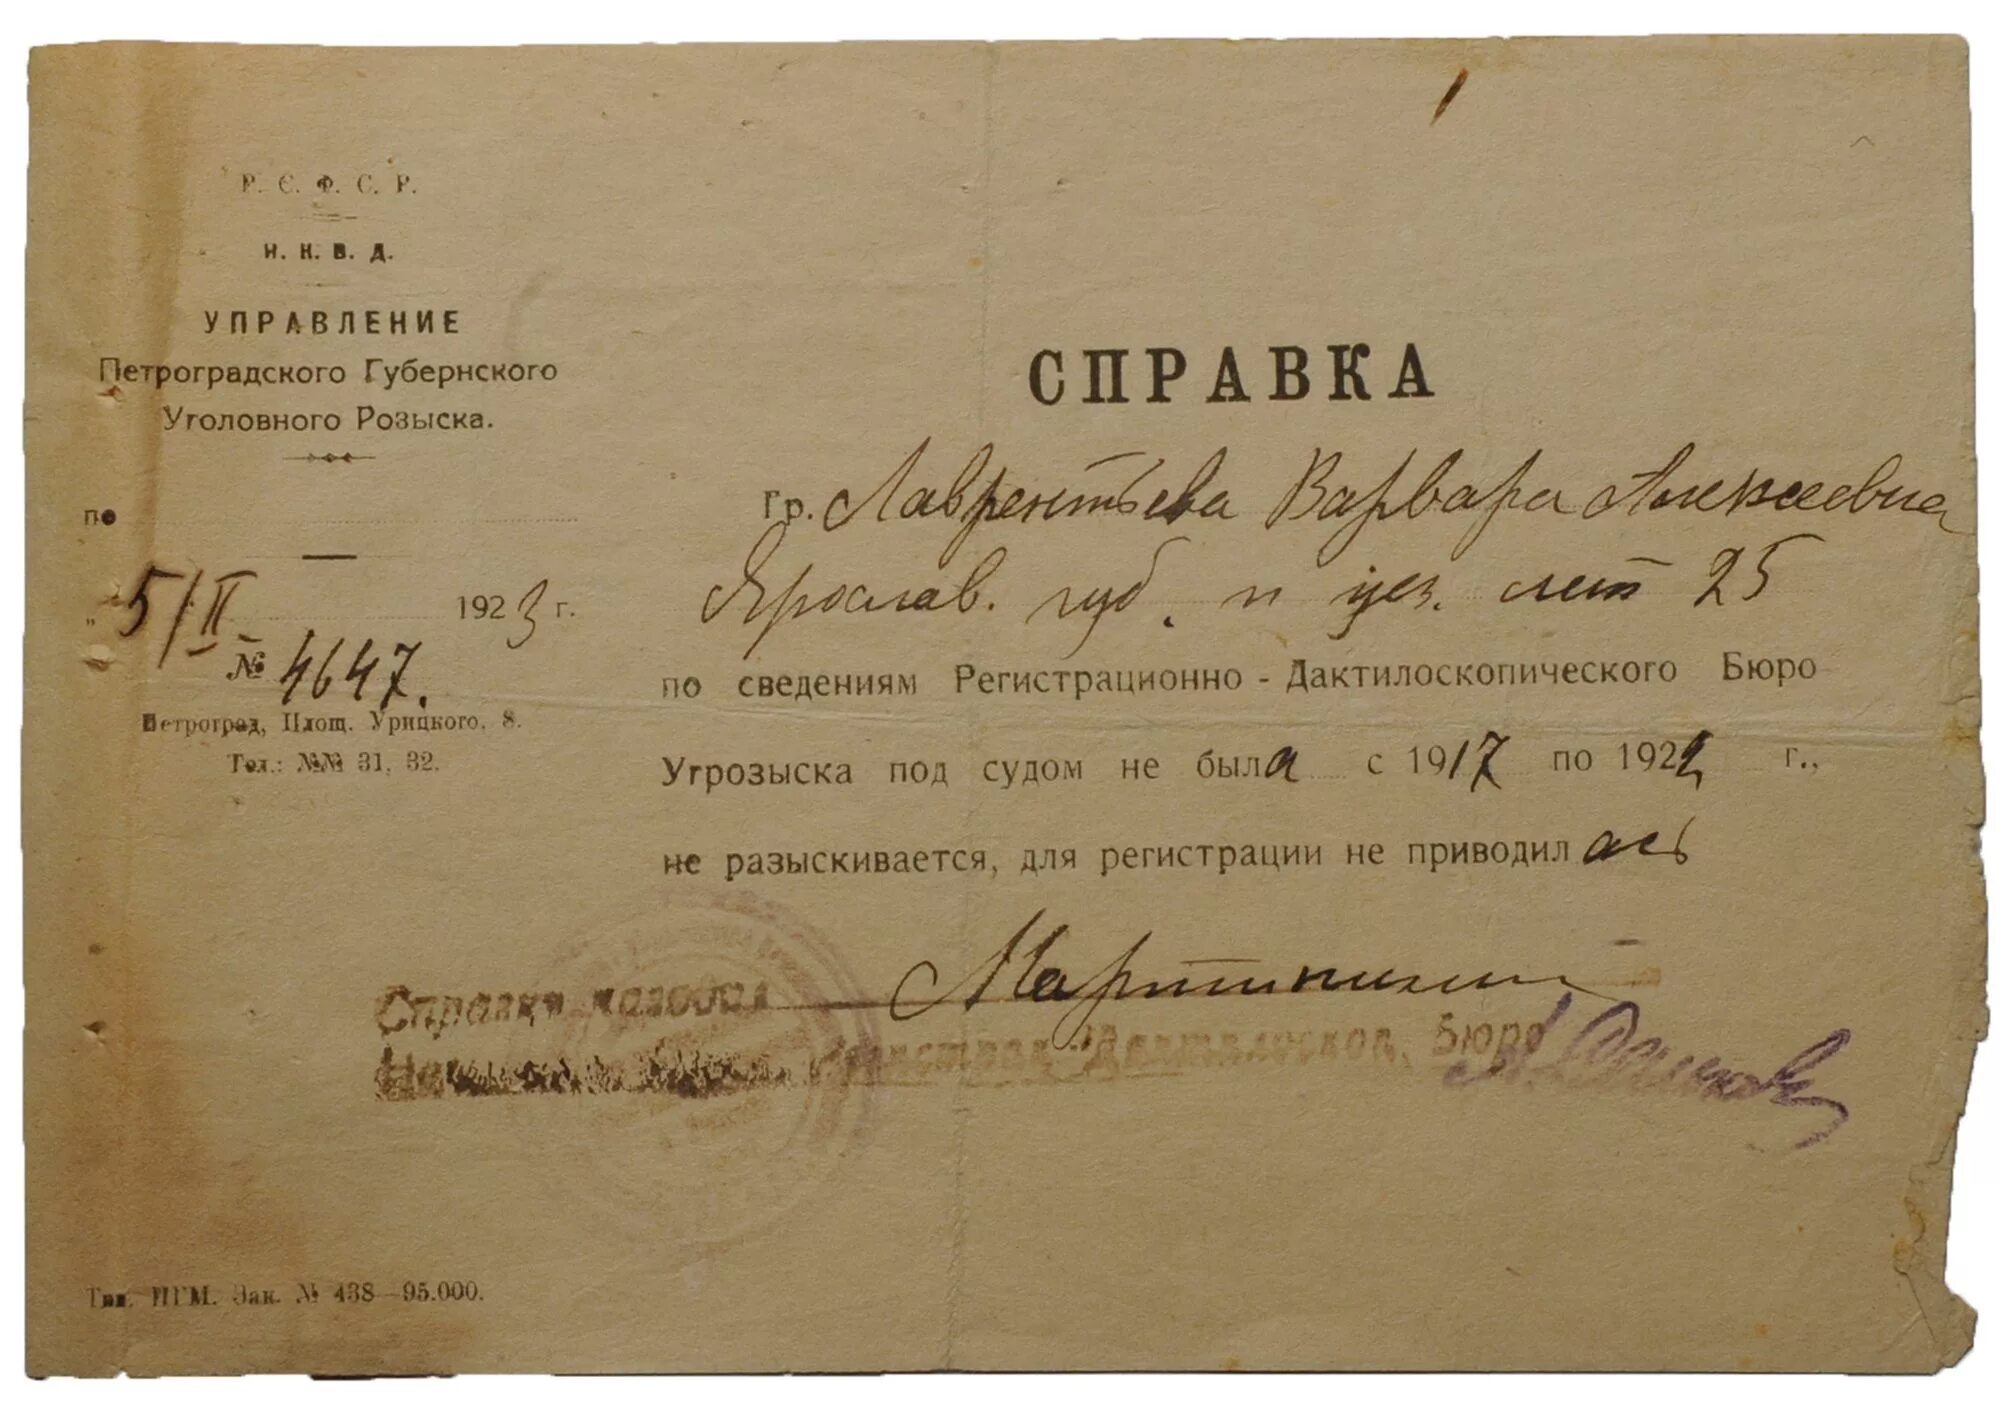 Р. С. Ф. С. Р.
Н. К. В. Д.
УПРАВЛЕНИЕ
Петроградского Губернского
Уголовного Розыска.
по
„ 5/II 1923 г.
№ 4647.
Петроград, Площ. Урицкого, 8.
Тел.: №№ 31, 32.
СПРАВКА
Гр. Лаврентьева Варвара Алексеевна
Ярослав. губ. и уез. лет 25
по сведениям Регистрационно - Дактилоскопического Бюро
Угрозыска под судом не была с 1917 по 1922 г.,
не разыскивается, для регистрации не приводилась
Справки наводил
Бюро
Тип. ПГМ. Зак. № 438—95.000.